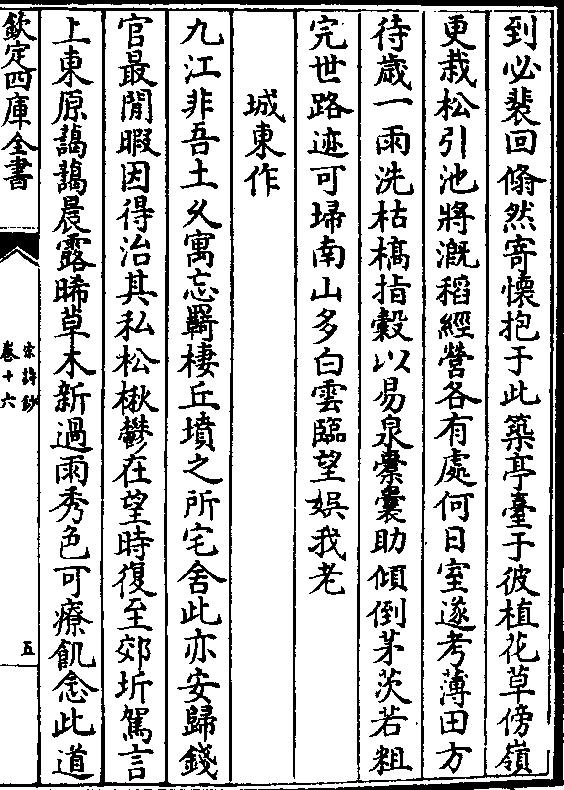 到必裴回翛然寄懷抱于此築亭臺于彼植花草傍嶺
更栽松引池將溉稻經營各有處何日室遂考薄田方
待歲一雨洗枯槁指穀以易泉橐囊助傾倒茅茨若粗
完世路迹可埽南山多白雲臨望娱我老
城東作
九江非吾土久寓忘羇棲丘墳之所宅舍此亦安歸錢
官最閒暇因得治其私松楸鬱在望時復至郊圻駕言
上東原藹藹晨露晞草木新過雨秀色可療飢念此道
欽定四庫全書
宋詩鈔
卷十六
五